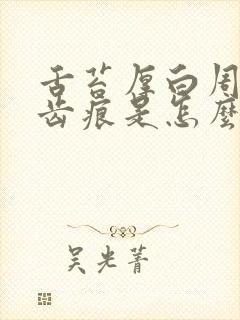 舌苔厚白周
齿痕是怎麼
吴光菁